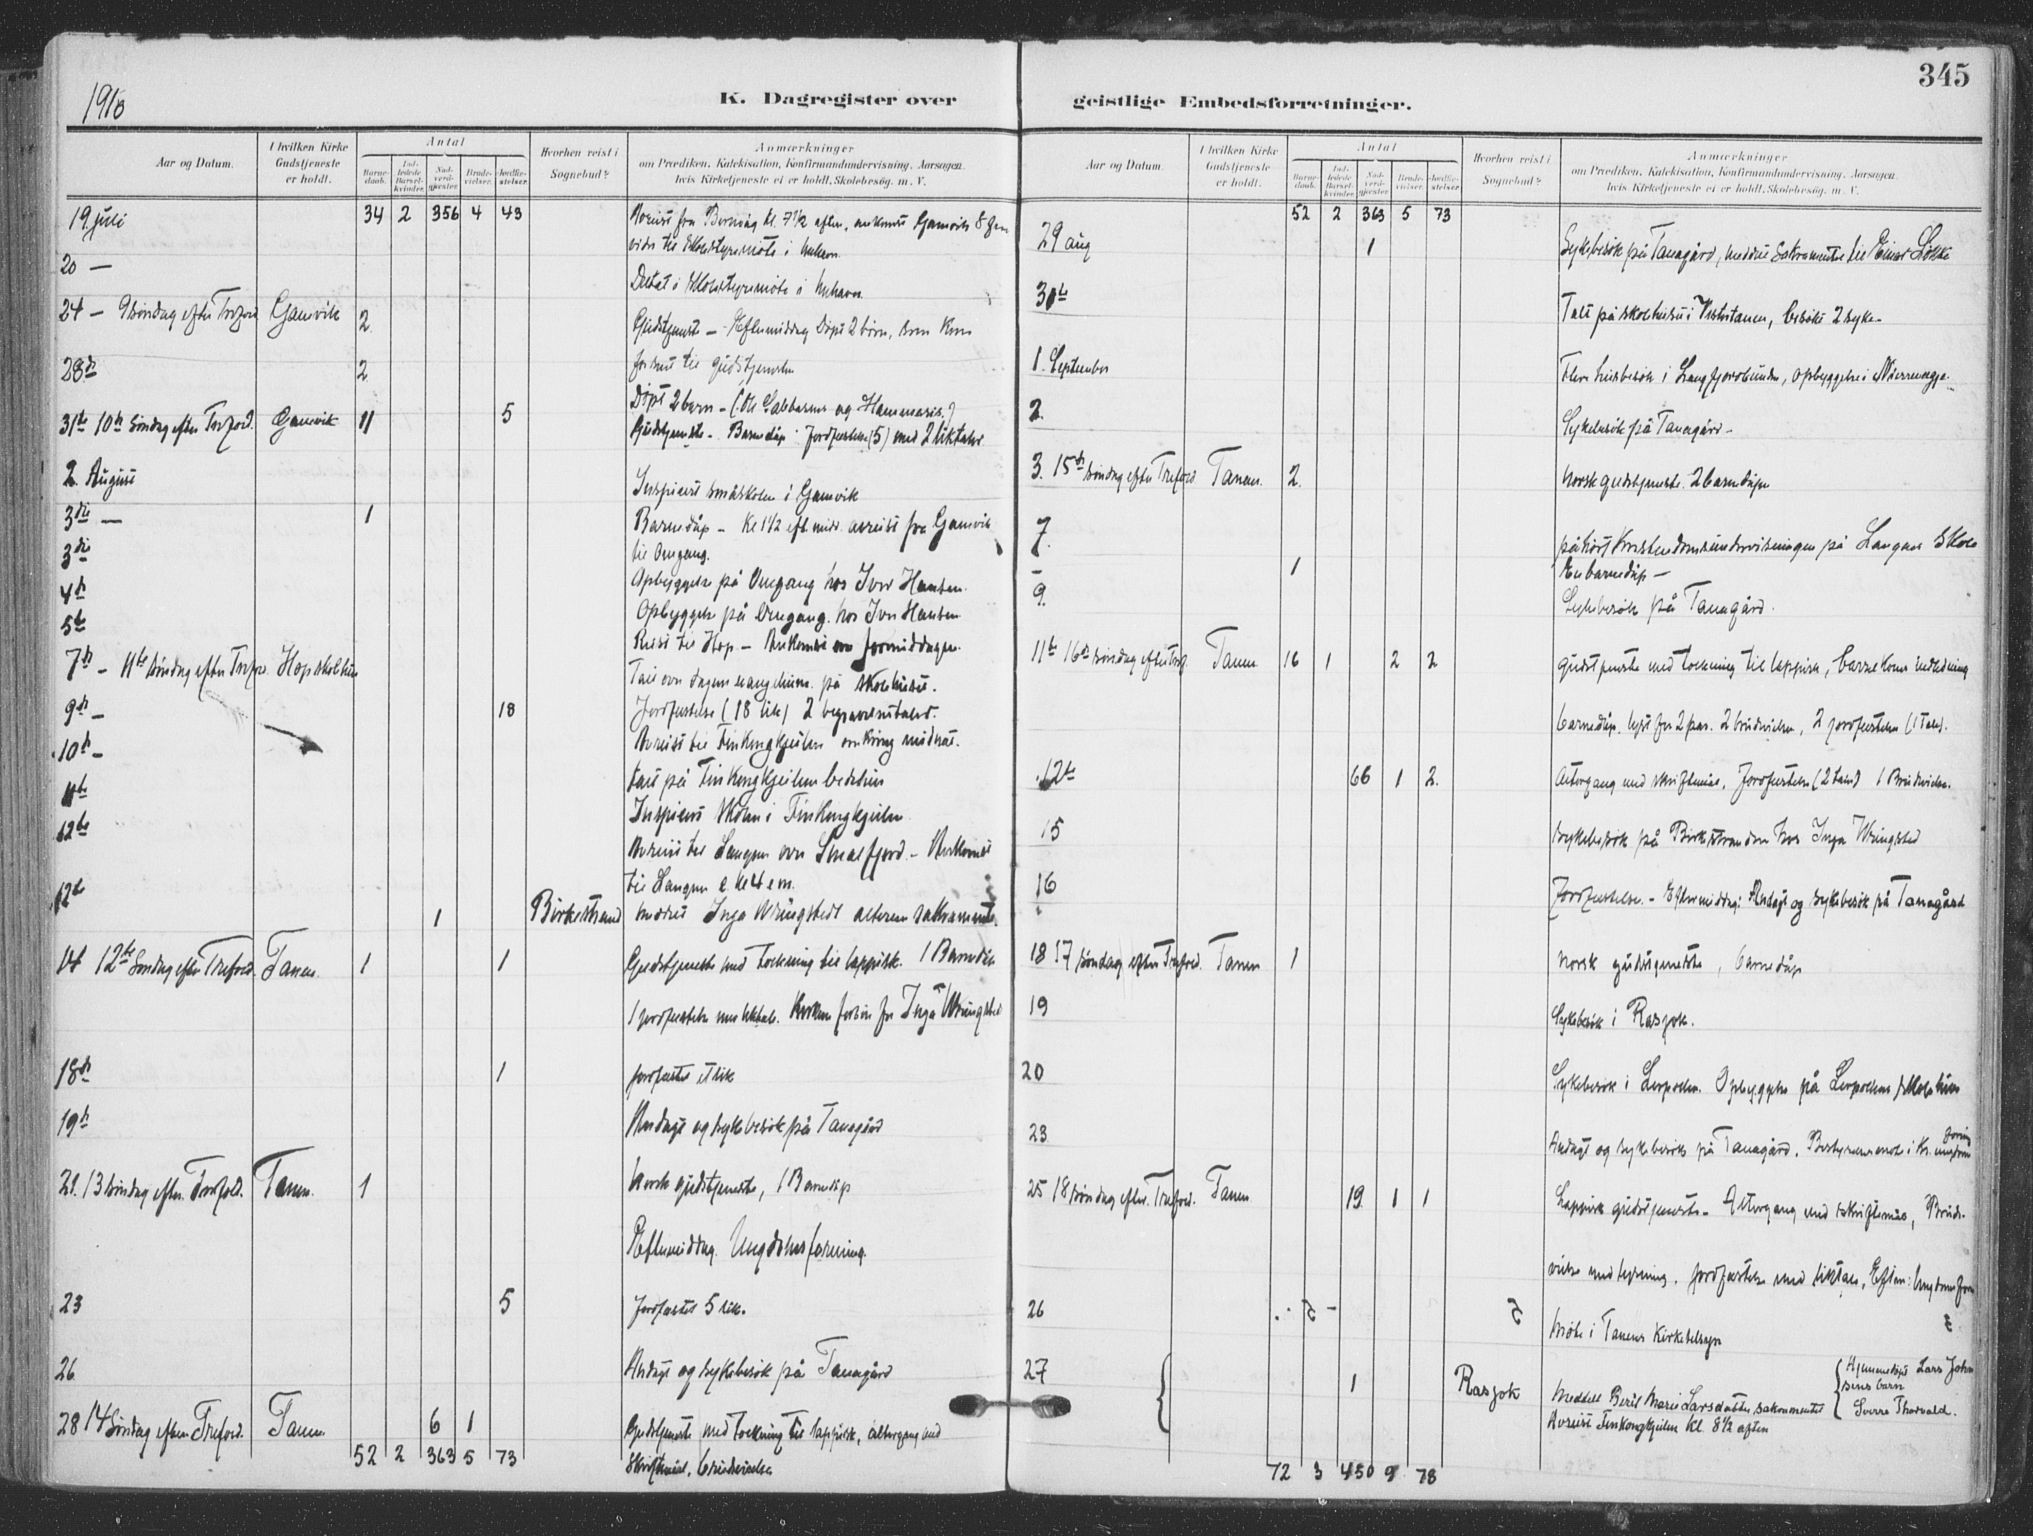 1910
K. Dagregister over
Aar og Datum.
I hvilken Kirke Gudstjeneste er holdt.
Antal
Barne-daab.
Ind-ledede Barsel-kvinder.
Nad-verd-gjester.
Brude-vielser.
Jordfæ-stelser.
Hvorhen reist i Sognebud?
Anmærkninger
om Prædiken, Katekisation, Konfirmandundervisning, Aarsagen,
hvis Kirketjeneste ei er holdt, Skolebesøg. m. V.
19 juli 34 2 356 4 43 Avreist fra kl. 7½ aften, ankomst Gamvik 8
vider til skolestyremøte i Mehavn
20 — Deltat i skolestyremøte i Mehavn
24 — 9 søndag efter Trefold Gamvik 2 Gudstjeneste – Eftermiddag Døpt 2 børn, som kom
for sent til gudstjenesten
28de 2 Døpt 2 barn – (Ole og )
31te 10de Søndag efter Trefold. Gamvik 11 5 Gudstjeneste – Barnedåp Jordfæstelse (5) med 2 liktaler
2. August Inspicert småskolen i Gamvik
3die — 1 Barnedåp – Kl 1½ eft. midd. avreist fra Gamvik
3die til Omgang.
4de Opbyggelse på Omgang hos Iver Hansen.
5te Opbyggelse på Omgang. hos Iver Hansen
Reist til Hop – Ankomst om formiddagen.
7de – 11te Søndag efter Trefold. Hop skolehus Tale over dagens evangelium. på skolehuset.
9de – 18 Jordfæstelse (18 lik) 2 begravelsestaler.
10de – Avreist til Finkongkjeilen omkring midnat.
11te tale på Finkongkjeilen bedehus
12te Inspicert skolen i Finkongkjeilen
Avreist til Langnes over Smalfjord – Ankomst
til Langnes c. kl 4 em.
12te 1 Birkestrand meddelt Inga Wringstedt alterens sakramente.
14 12te Søndag efter Trefold. Tanen. 1 1 Gudstjeneste med tolkning til lappisk. 1 Barnedåp
1 jordfæstelse med liktale. Kirkens forbøn for Inga Wringsted
18de 1 jordfæstet et lik
19de Andagt og sykebesøk på Tanagård
21. 13 søndag efter. Trefold. Tanen. 1 Norsk gudstjeneste, 1 Barnedåp
Eftermiddag. Ungdomsforening.
23 5 Jordfæstet 5 lik.
26 Andagt og sykebesøk på Tanagård
28 14 Søndag efter Trefold. Tanen 6 1 Gudstjeneste med tolkning til lappisk, altergang med
52 2 363 5 73 Skriftemål, brudevielse
345
geistlige Embedsforretninger.
Aar og Datum.
I hvilken Kirke Gudstjeneste er holdt.
Antal
Barne-daab.
Ind-ledede Barsel-kvinder.
Nad-verd-gjester.
Brude-vielser.
Jordfæ-stelser.
Hvorhen reist i Sognebud?
Anmærkninger
om Prædiken, Katekisation, Konfirmandundervisning, Aarsagen,
hvis Kirketjeneste ei er holdt, Skolebesøg. m. V.
52 2 363 5 73
29 aug 1 Sykebesøk på Tanagård, meddelt sakramentet til Einar
31te Tale på skolehuset i Vestertanen, besøkt 2 syke –
1. September Flere husbesøk i Langfjordbunden, opbyggelse i
2. Sykebesøk på Tanagård –
3. 15de søndag efter Trefold. Tanen. 2. Norsk gudstjeneste. 2 barnedåp
7. påhørt kristendomsundervisningen på Langnes skole
– 1 En barnedåp –
9. Sykebesøk på Tanagård.
11te 16de søndag efter Tref. Tanen 16 1 2 2 gudstjeneste med tolkning til lappisk, barselkone indledning
barnedåp, lyst for 2 par. 2 brudevielser, 2 jordfæstelser (1 tale).
12te 66 1 2. Altergang med skriftemål, Jordfæstelse (2 taler) 1 Brudevielse.
15 sykebesøk på Birkestranden hos Inga Wringsted
16 Jordfæstelse. – Eftermiddag: Andagt og sykebesøk på Tanagård
18 17 søndag efter Trefold. Tanen 1 norsk gudstjeneste, barnedåp
19 Sykebesøk i Rasjok.
20 Sykebesøk i Lerpollen. Opbyggelse på Lerpollens skolehus
23 Andagt og sykebesøk på Tanagård. Bestyrermøte i Kr. ungdomsforening
25 18 søndag efter. Trefold. Tanen 19 1 1 Lappisk gudstjeneste – Altergang med skriftemål, Brude-
vielse med lysning, jordfæstelse med liktale, Efterm: Ungdomsforen
26 Møte i Tanens kirketilsyn
27 1 Rasjok Meddelt Berit Marie Larsdatter sakramentet
Hjemmedøpt Lars Johnsens barn
Sverre Thorvald.
Avreist Finkongkjeilen kl 8½ aften
72 3 450 9 78